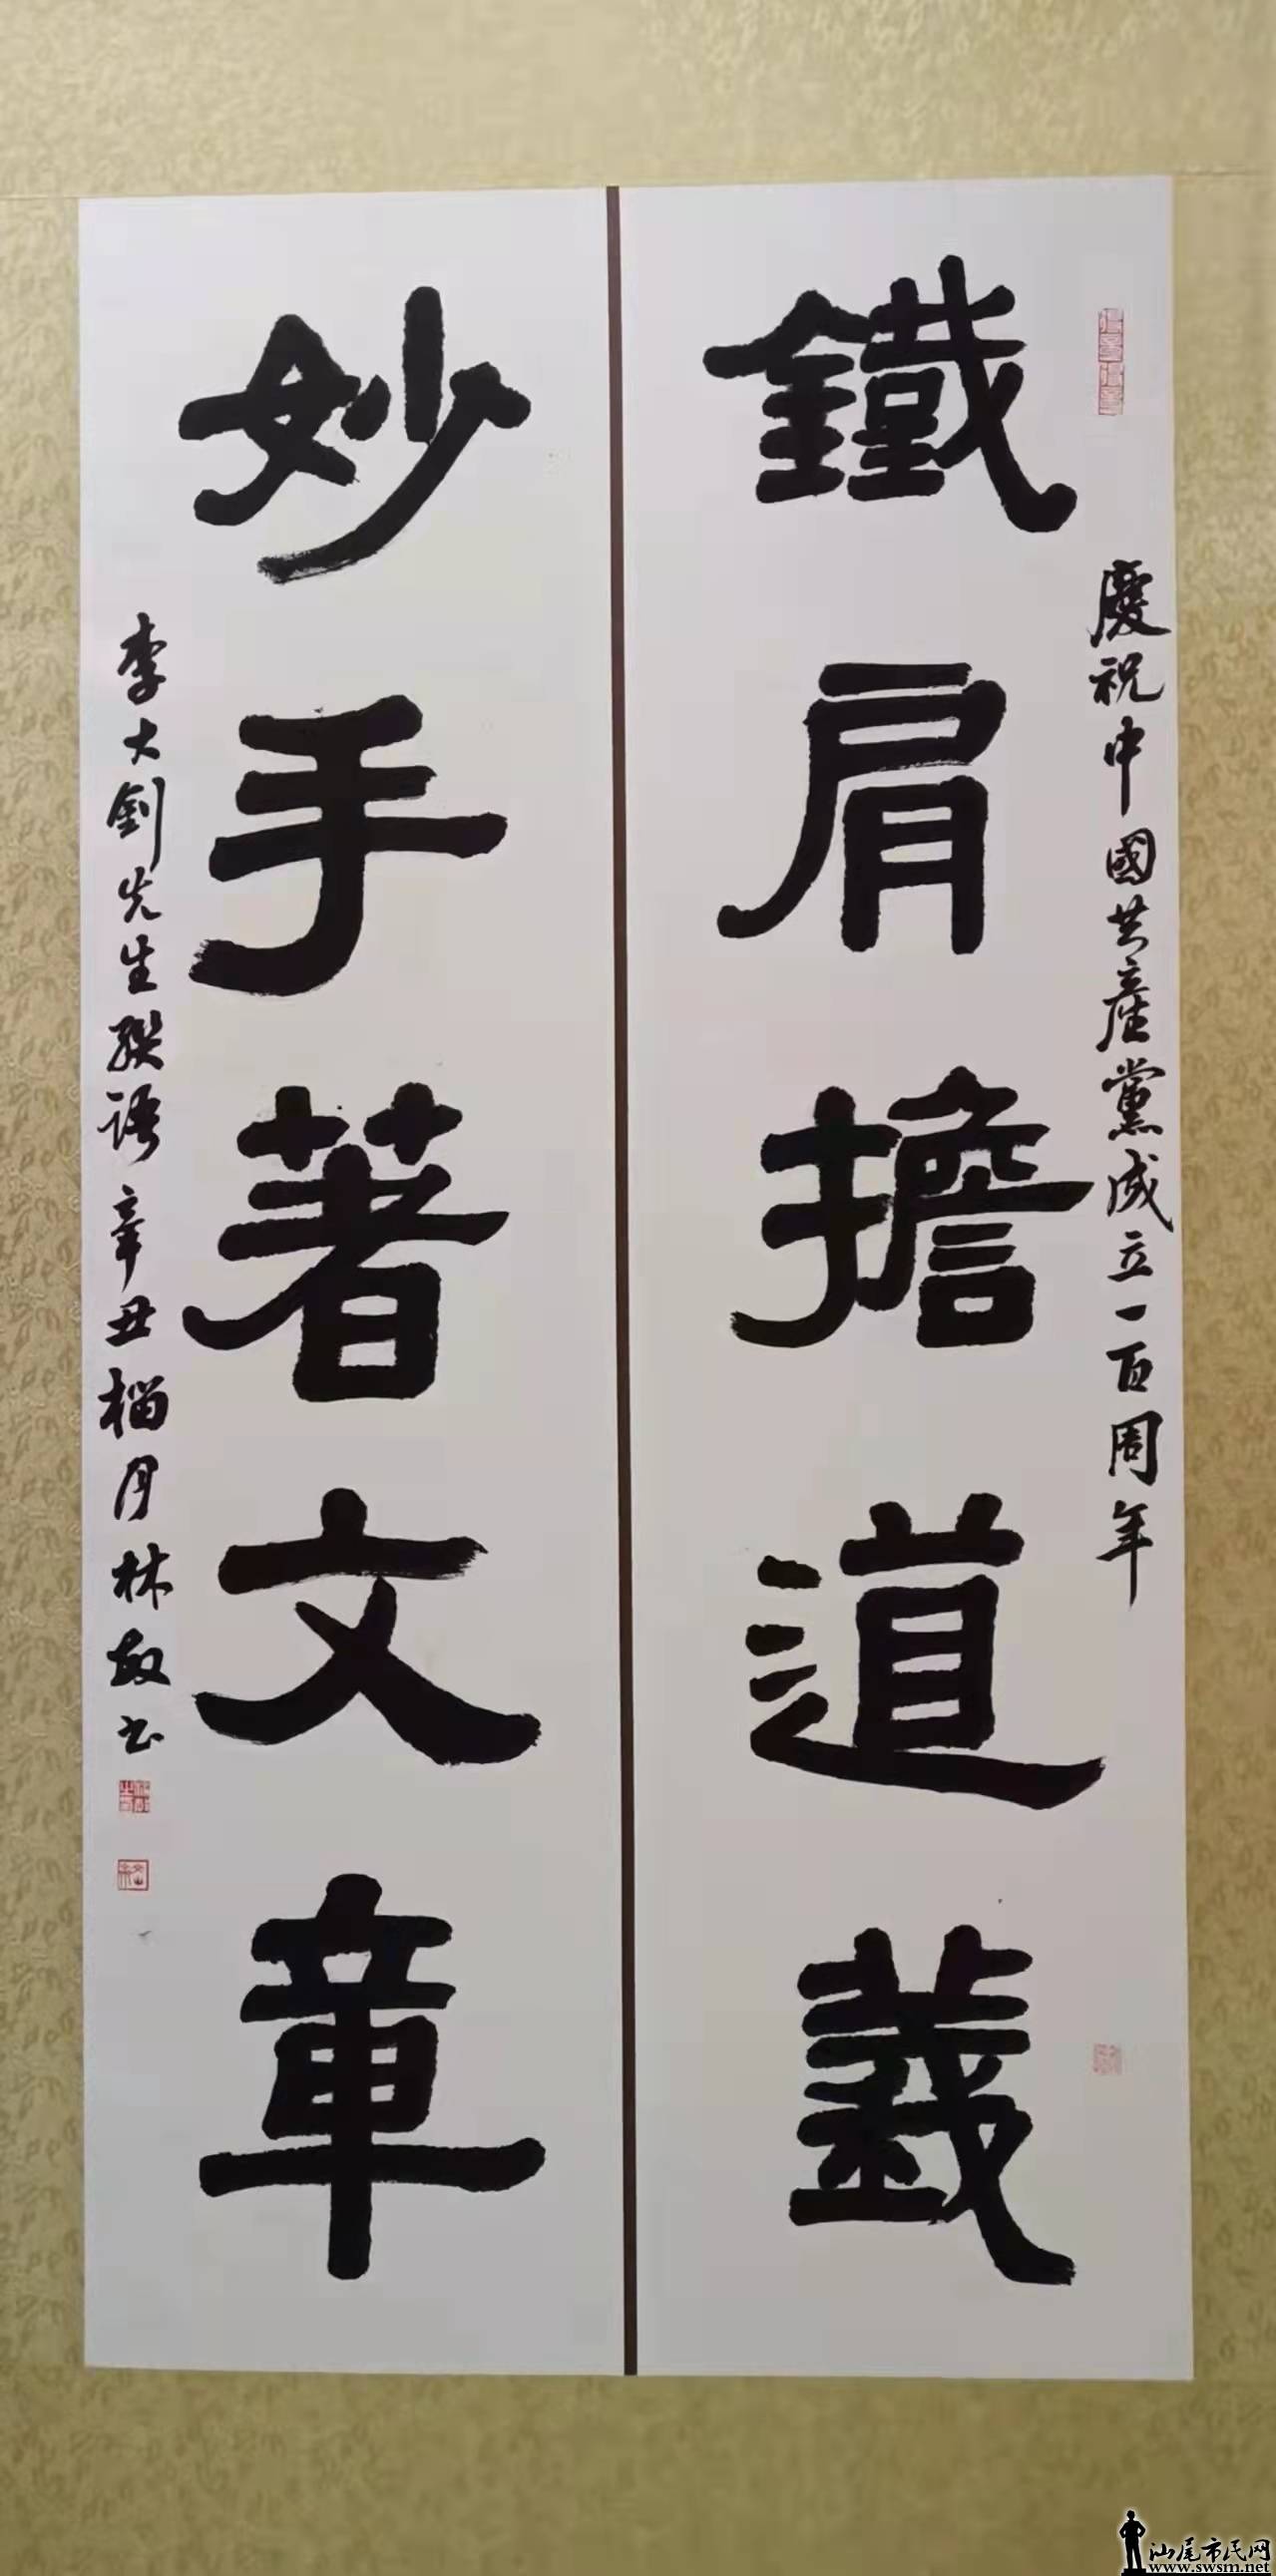 鐵肩擔道義
慶祝中國共產黨成立一百周年
妙手著文章
李大釗先生聯語 辛丑榴月 林敬书
汕尾市民网
www.swsm.net